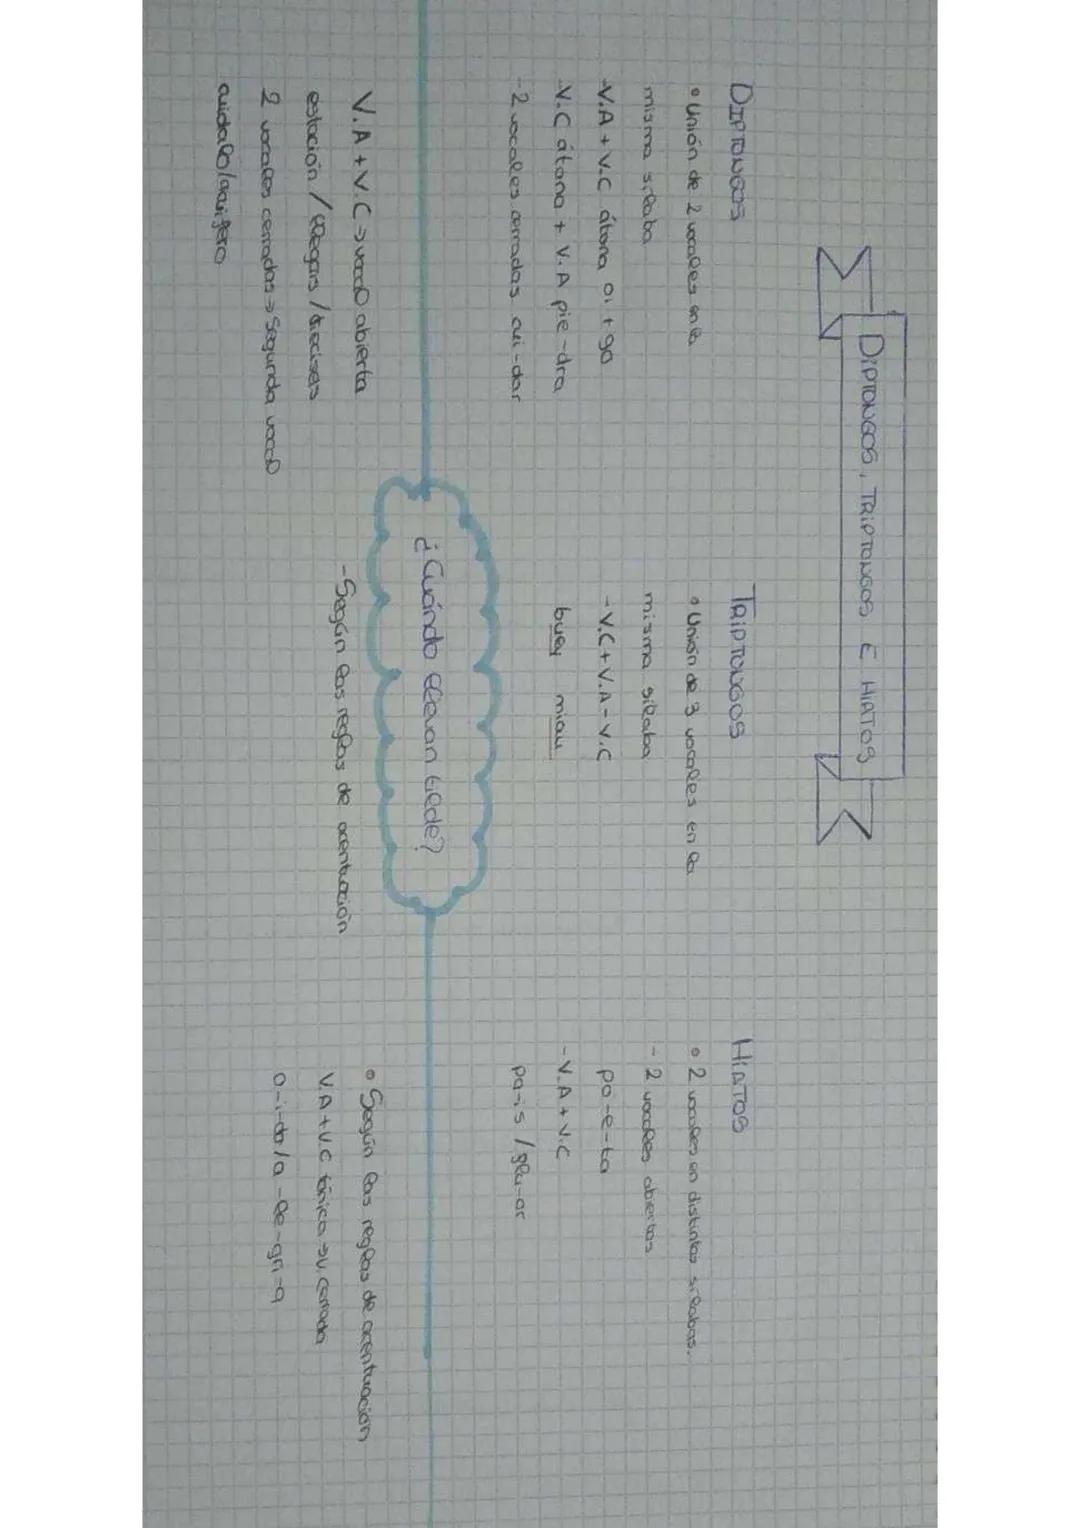 DIPTONGOS, TRIPTONGOS E HIATOS
DIPTONGOS
• Unión de 2 vocales en la
misma sílaba
-V.A + V.C átona oi + go
-V.C átona + V.A pie-dra
-2 vocales cerradas cui-dar
TRIPTONGOS
• Unión de 3 vocales en la
misma sílaba
-V.C + V.A - V.C
buey miau
HIATOS
• 2 vocales en distintas sílabas.
- 2 vocales abiertas
po-e-ta
- V.A + V.C
pa-is / gru-ar
¿Cuándo llevan tilde?
V.A + V.C → vocal abierta
estación / llegáis / dieciséis
2 vocales cerradas → Segunda vocal
cuídalo / acuífero
-Según las reglas de acentuación
• Según las reglas de acentuación
V.A + V.C tónica → V. Cerrada
o-í-do / a-le-grí-a